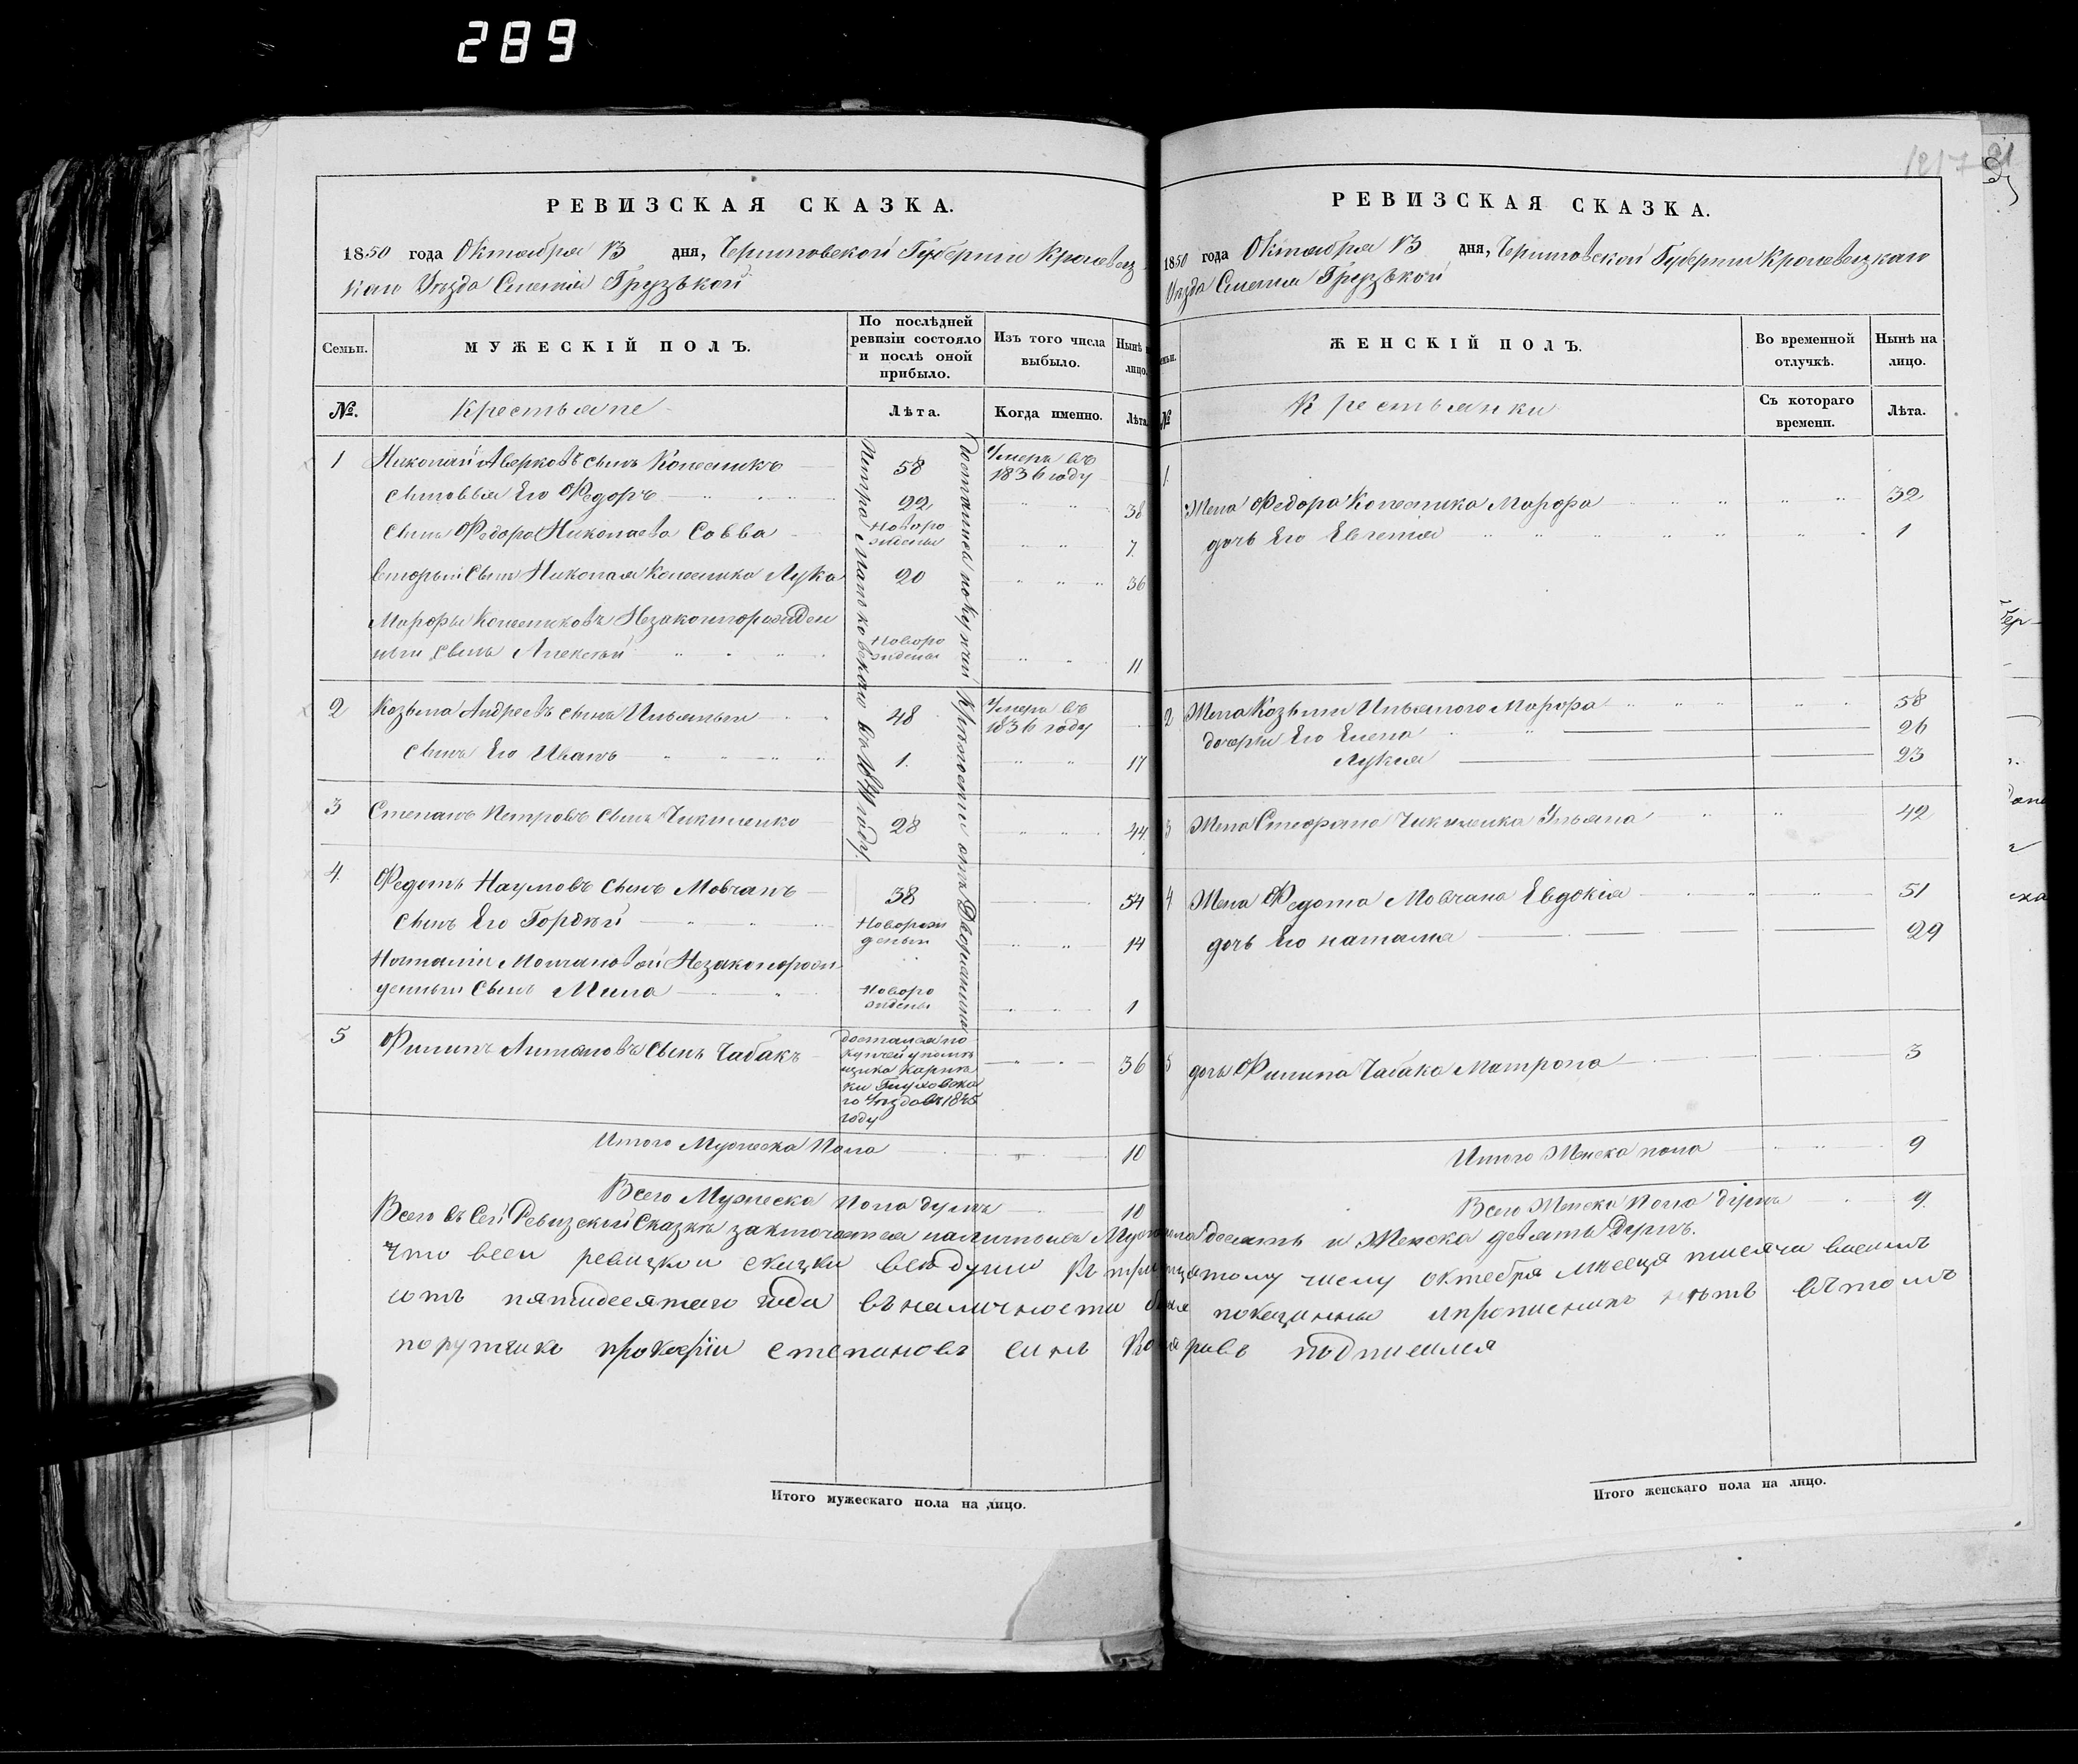 289
РЕВИЗСКАЯ СКАЗКА.
1850 года Октября 13 дня, Черниговской Губернии Кролевец
каго Уезда Слатина Грузской
Семьи.
МУЖЕСКІЙ ПОЛЪ.
По послѣдней
ревизіи состояло
и послѣ оной
прибыло.
Изъ того числа
выбыло.
Нынѣ
лицо.
№.
Крестьяне
Лѣта.
Когда именно.
Лѣта
Достались по купчей крѣпости отъ Дворянина
Петра в 1844 году
1 Николай Аверковъ сынъ Колесникъ 58 Умеръ въ
1836 году
сыновья Его Федоръ 22 38
Сынъ Федора Николаева Савва Новоро
жденъ 7
второй Сынъ Николая Колесника Лука 20 36
Марфы Колесниковъ Незаконнорожден
ный сынъ Алексѣй Новоро
жденъ 11
2 Козьма Андреевъ сынъ Ильяшын 48 Умеръ въ
1836 году
сынъ Его Иванъ 1. 17
3 Степанъ Петровъ Сынъ Чикиленко 28 44
4. Федотъ Наумовъ сынъ Мовчанъ 38 54
Сынъ Его Гордѣй Новорож
денъ 14
Наталіи Молчановой Незаконнорож
денный Сынъ Мина Новоро
жденъ 1
5 Филипъ Антоновъ Сынъ Чабакъ 36
достался по
купчей у помѣ
щика
Глуховска
го Уѣзда въ 1845
году
Итого Мужеска Пола 10
Всего Мужеска Пола душъ 10
Итого мужескаго пола на лицо.
РЕВИЗСКАЯ СКАЗКА.
1850 года Октября 13 дня, Черниговской Губернии Кролевецкаго
Уезда Слатина Грузской
ЖЕНСКІЙ ПОЛЪ.
Во временной
отлучкѣ.
Нынѣ на
лицо.
№
Крестьянки
Съ котораго
времени.
Лѣта.
1. Жена Федора Колесника Марфа 32
дочь Его Евгения 1
2 Жена Козьмы Ильяшого Марфа 58
дочери Его Елена 26
Лукия 23
3 Жена Стефана Чикиленка Ульяна 42
4 Жена Федота Мовчана Евдокія 51
дочь Его наталия 29
5 дочь Филипа Чабака Матрона 3
Итого Женска пола 9
Всего Женска Пола душъ 9.
Всего въ Сей Ревизской Сказкѣ заключается налицо Мужеска десять и Женска девять душъ.
Что всеи ревизкои сказки всѣ души къ тридцятому числу октебря мѣсеця тисяча восимъ
сотъ пятидесятаго года въ наличности были показанны и прописнихъ нѣтъ вътомъ
порутчикъ прокофіи степановъ синъ подписался
Итого женскаго пола на лицо.